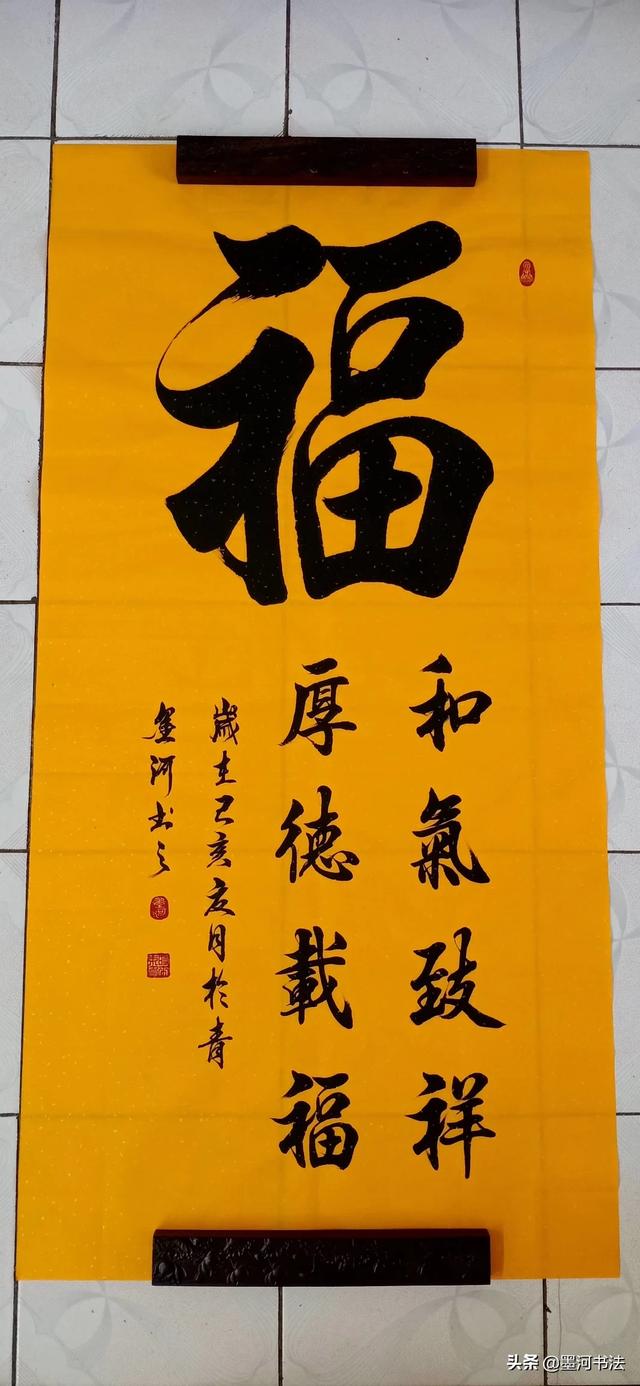 福
和氣致祥
厚德載福
歲在己亥夏月於青
墨河书之
头条 @墨河书法